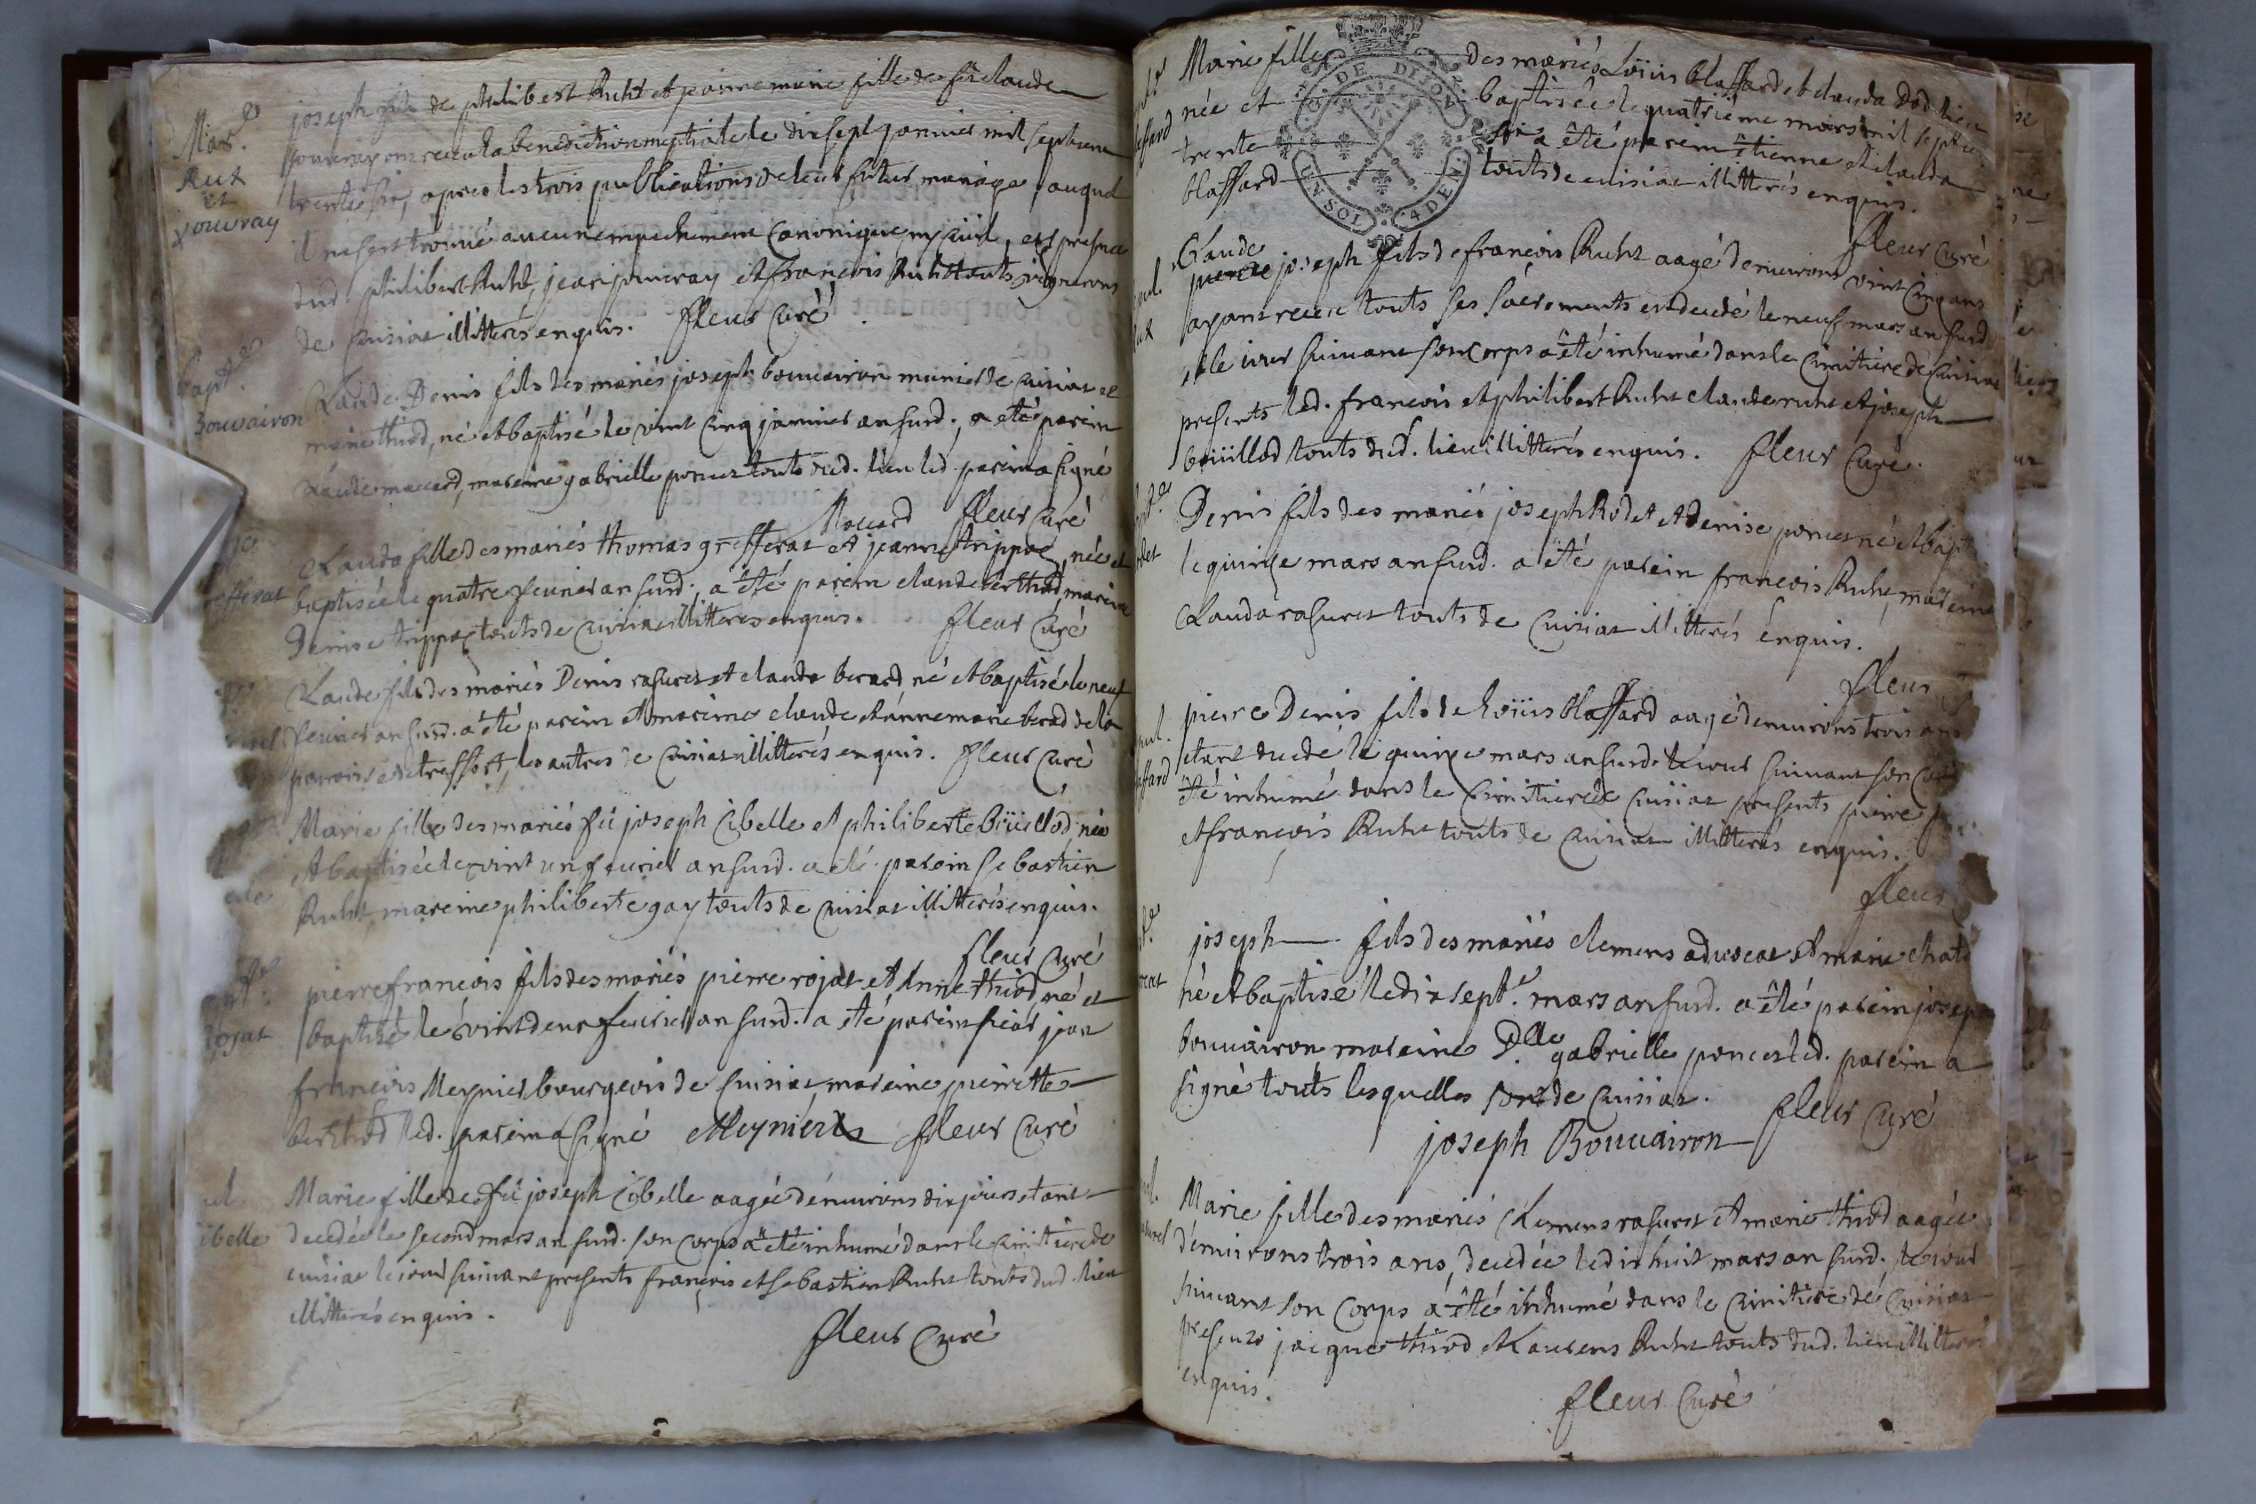 Mar.ge
Rux
et
jouvray
joseph fils de philibert Ruht et poinne marie fille de fû claude
jouvray ont receu la benediction nuptiale le dix sept janvier mil sept cent
trente six, apres les trois publications de leur futur mariage, auquel
il ne sest trouvé aucun empechement canonique, ny civil, et presence
dud. philibert Ruht, jean jouvray et françois Ruht touts vignerons
de cuisiat illitterés enquis. fleur curé
Bapt.e
Bouvairon
Claude Denis fils des mariés joseph bouvairon munier de cuisiat et
marie thiod, né et baptisé le vint cinq janvier an susd., a eté parein
claude macard, mareine gabrielle poncet touts dud. lieu led. parein a signé
Macard fleur curé
efferat
Clauda fille des mariés thomas grefferat et jeanne trippoz, née et
baptisée le quatre fevrier an susd., a été parein claude berthod mareine
Denise trippoz touts de cuisiat illitteres enquis. fleur curé
Claude fils des mariés Denis rasuret et clauda berard né et baptisé le neuf
fevrier an susd. a été parein et mareine claude et anne marie berad de la
parroisse de treffort, les autres de cuisiat illitterés enquis. fleur curé
Marie fille des mariés fû joseph Cibelle et philiberte Boüillod, née
et baptisée le vint un fevrier an susd. a été parein sebastien
Ruht, mareine philiberte gay touts de cuisiat illitterés enquis.
fleur curé
rojat
pierre françois fils des mariés pierre rojat et Anne thiod né et
baptisé le vint deux fevrier an susd. a été parein sieur jean
françois Meynier bourgeois de cuisiat, mareine pierrette
berthod led. parein a signé Meynier fleur curé
ibelle
Marie fille de fû joseph Cibelle aagée d'environs dix jours etant
decedée le second mars an susd. son corps a eté inhumé dans le cimitiere de
cuisiat le iour suivant presents françois et sebastien Ruht touts dud. lieu
illitterés enquis.
fleur curé
affard
Marie fille des mariés Loüis blaffard et clauda Dod bien
née et baptisée le quatrieme mars mil sept cent
trente six a été parein étienne et clauda
blaffard touts de cuisiat illitterés enquis.
fleur curé
DE DIJON
UN SOL 4 DEN.
Claude
pierre joseph fils de françois Ruht aagé d'environs vint cinq ans
ayant receu touts ses sacrements est decedé le neuf mars an susd.
et le iour suivant son corps a été inhumé dans le cimitiere de cuisiat
presents led. françois et philibert Ruht claude ruht et joseph
boüillod touts dud. lieu illitterés enquis. fleur curé.
Denis fils des mariés joseph Rodet et Denise poncet né et bapt
le quinze mars an susd. a été parein françois Ruht, mareine
Clauda rasuret touts de cuisiat illitterés enquis.
fleur
affard
pierre Denis fils de Loüis blaffard aagé d'environs trois ans
etant decedé le quinze mars an susd. le iour suivant son corps
été inhumé dans le cimitiere de cuisiat presents pierre
et françois Ruht touts de cuisiat illitterés enquis.
fleur
joseph fils des mariés clemens aduocat et marie chat
né et baptisé le dix sept.e mars an susd. a été parein joseph
bouvairon mareine D.lle gabrielle poncet led. parein a
signé touts lesquelles sont de cuisiat. fleur curé
joseph Bouvairon
Marie fille des mariés Clemens rasuret et marie thiod aagée
d'environs trois ans, decedée le dix huit mars an susd. le iour
suivant son corps a été inhumé dans le cimitiere de cuisiat
presents jacques thiod et Laurens Ruht touts dud. lieu illitterés
enquis.
fleur curé